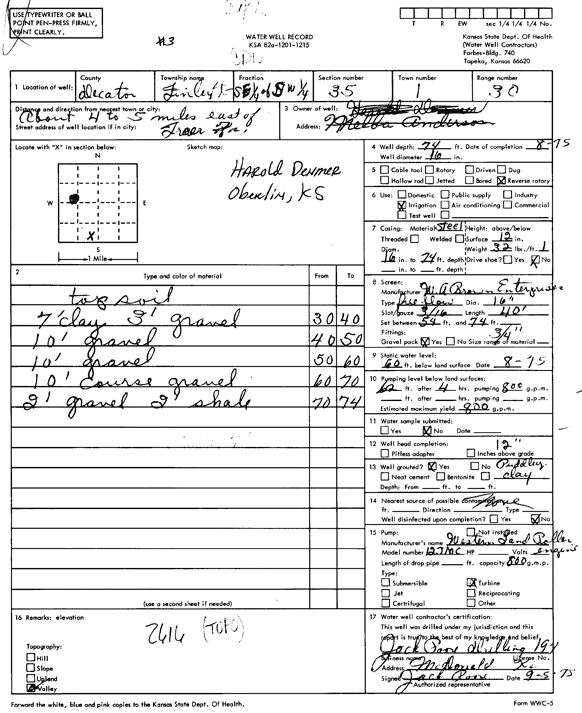 USE TYPEWRITER OR BALL
POINT PEN-PRESS FIRMLY,
PRINT CLEARLY.
#3
WATER WELL RECORD
KSA 82a-1201-1215
T R EW sec 1/4 1/4 1/4 No.
Kansas State Dept. Of Health
(Water Well Contractors)
Forbes-Bldg. 740
Topeka, Kansas 66620
1 Location of well: County Decator Township name Finley Fraction SE 1/4 of SW 1/4 Section number 35 Town number 1 Range number 30
Distance and direction from nearest town or city: About 4 to 5 miles east of
Street address of well location if in city: Traer Ks.
3 Owner of well: Harold Denmer
Address: Melba Anderson
Locate with "X" in section below:
Sketch map:
N
W E
X
S
1 Mile
HAROLD DENMER
OBERLIN, KS
4 Well depth: 74 ft. Date of completion 8-75
Well diameter 16 in.
5 Cable tool Rotary Driven Dug
Hollow rod Jetted Bored X Reverse rotary
6 Use: Domestic Public supply Industry
X Irrigation Air conditioning Commercial
Test well
7 Casing: Material Steel Height: above/below
Threaded Welded Surface 12 in.
Diam. Weight 32 lbs/ft. 1
16 in. to 74 ft. depth Drive shoe? Yes X No
in. to ft. depth
8 Screen:
Manufacturer W.A. Brown Enterprises
Type free flow Dia. 16"
Slot/gauze 3/16 Length 40'
Set between 54 ft. and 74 ft.
Fittings: 3/4"
Gravel pack X Yes No Size range of material
9 Static water level:
60 ft. below land surface Date 8-75
10 Pumping level below land surfaces:
62 ft. after 4 hrs. pumping 800 g.p.m.
ft. after hrs. pumping g.p.m.
Estimated maximum yield 800 g.p.m.
11 Water sample submitted:
Yes X No Date
12 Well head completion: 12"
Pitless adapter Inches above grade
13 Well grouted? X Yes No Puddley
Neat cement Bentonite clay
Depth: From ft. to ft.
14 Nearest source of possible contamination: None
ft. Direction Type
Well disinfected upon completion? Yes X No
15 Pump: Not installed
Manufacturer's name Western Land Roller
Model number 12JMOC HP Volts engine
Length of drop pipe ft. capacity 800 g.m.p.
Type:
Submersible X Turbine
Jet Reciprocating
Certrifugal Other
2 Type and color of material From To
top soil
7' clay 3' gravel 30 40
10' gravel 40 50
10' gravel 50 60
10' course gravel 60 70
2' gravel 2' shale 70 74
(use a second sheet if needed)
16 Remarks: elevation
2616 (TOPO)
Topography:
Hill
Slope
Upland
X Valley
17 Water well contractor's certification:
This well was drilled under my jurisdiction and this
report is true to the best of my knowledge and belief.
Jack Poore Drilling 194
Business name License No.
Address McDonald Ks.
Signed Jack Poore Date 9-5-75
Authorized representative
Forward the white, blue and pink copies to the Kansas State Dept. Of Health.
Form WWC-5